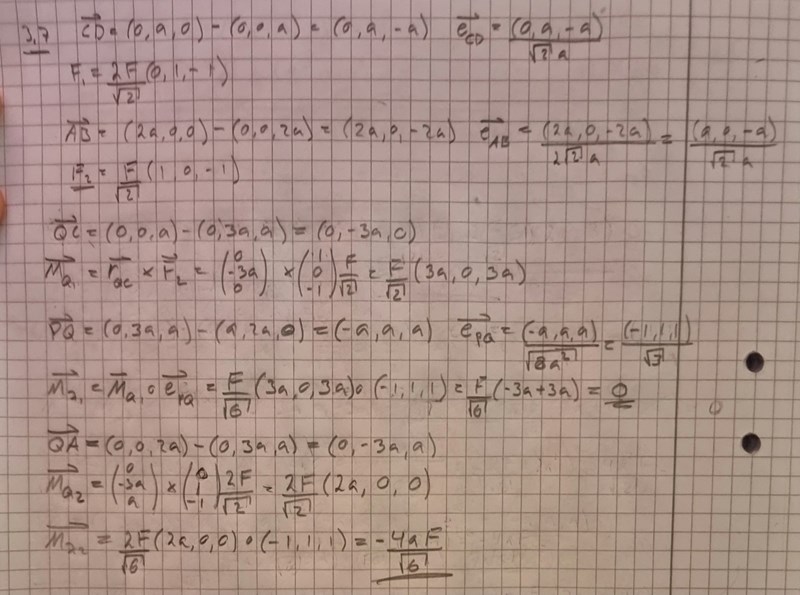 3,7 $\vec{CD} = (0,a,0) - (0,0,a) = (0,a,-a)$ $\vec{e_{CD}} = \frac{(0,a,-a)}{\sqrt{2}a}$
$F_1 = \frac{2F}{\sqrt{2}}(0,1,-1)$
$\vec{AB} = (2a,0,0) - (0,0,2a) = (2a,0,-2a)$ $\vec{e_{AB}} = \frac{(2a,0,-2a)}{2\sqrt{2}a} = \frac{(a,0,-a)}{\sqrt{2}a}$
$F_2 = \frac{F}{\sqrt{2}}(1,0,-1)$
$\vec{QC} = (0,0,a) - (0,3a,a) = (0,-3a,0)$
$\vec{M_{Q_1}} = \vec{r_{QC}} \times \vec{F_2} = \begin{pmatrix} 0 \\ -3a \\ 0 \end{pmatrix} \times \begin{pmatrix} 1 \\ 0 \\ -1 \end{pmatrix} \frac{F}{\sqrt{2}} = \frac{F}{\sqrt{2}}(3a,0,3a)$
$\vec{PQ} = (0,3a,a) - (a,2a,0) = (-a,a,a)$ $\vec{e_{PQ}} = \frac{(-a,a,a)}{\sqrt{3a^2}} = \frac{(-1,1,1)}{\sqrt{3}}$
$\vec{M_{\lambda_1}} = \vec{M_{Q_1}} \circ \vec{e_{PQ}} = \frac{F}{\sqrt{6}}(3a,0,3a) \circ (-1,1,1) = \frac{F}{\sqrt{6}}(-3a+3a) = 0$
$\vec{QA} = (0,0,2a) - (0,3a,a) = (0,-3a,a)$
$\vec{M_{Q_2}} = \begin{pmatrix} 0 \\ -3a \\ a \end{pmatrix} \times \begin{pmatrix} 0 \\ 1 \\ -1 \end{pmatrix} \frac{2F}{\sqrt{2}} = \frac{2F}{\sqrt{2}}(2a,0,0)$
$\vec{M_{\lambda_2}} = \frac{2F}{\sqrt{6}}(2a,0,0) \circ (-1,1,1) = \frac{-4aF}{\sqrt{6}}$